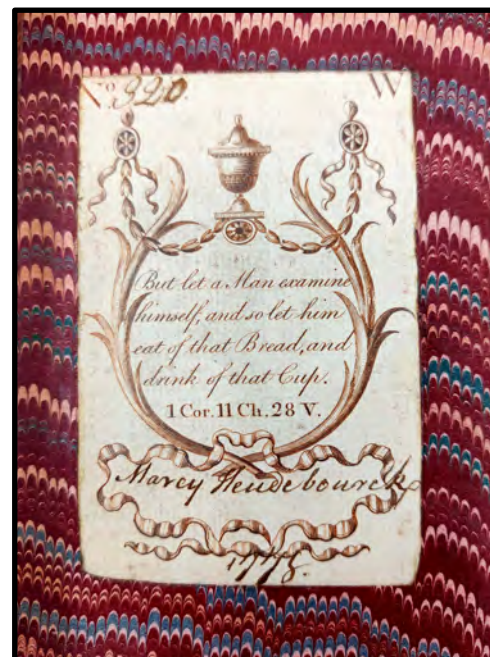 No. 320. W
But let a Man examine
himself, and so let him
eat of that Bread, and
drink of that Cup.
1 Cor. 11 Ch. 28 V.
Marcy Heudebourck
1778.